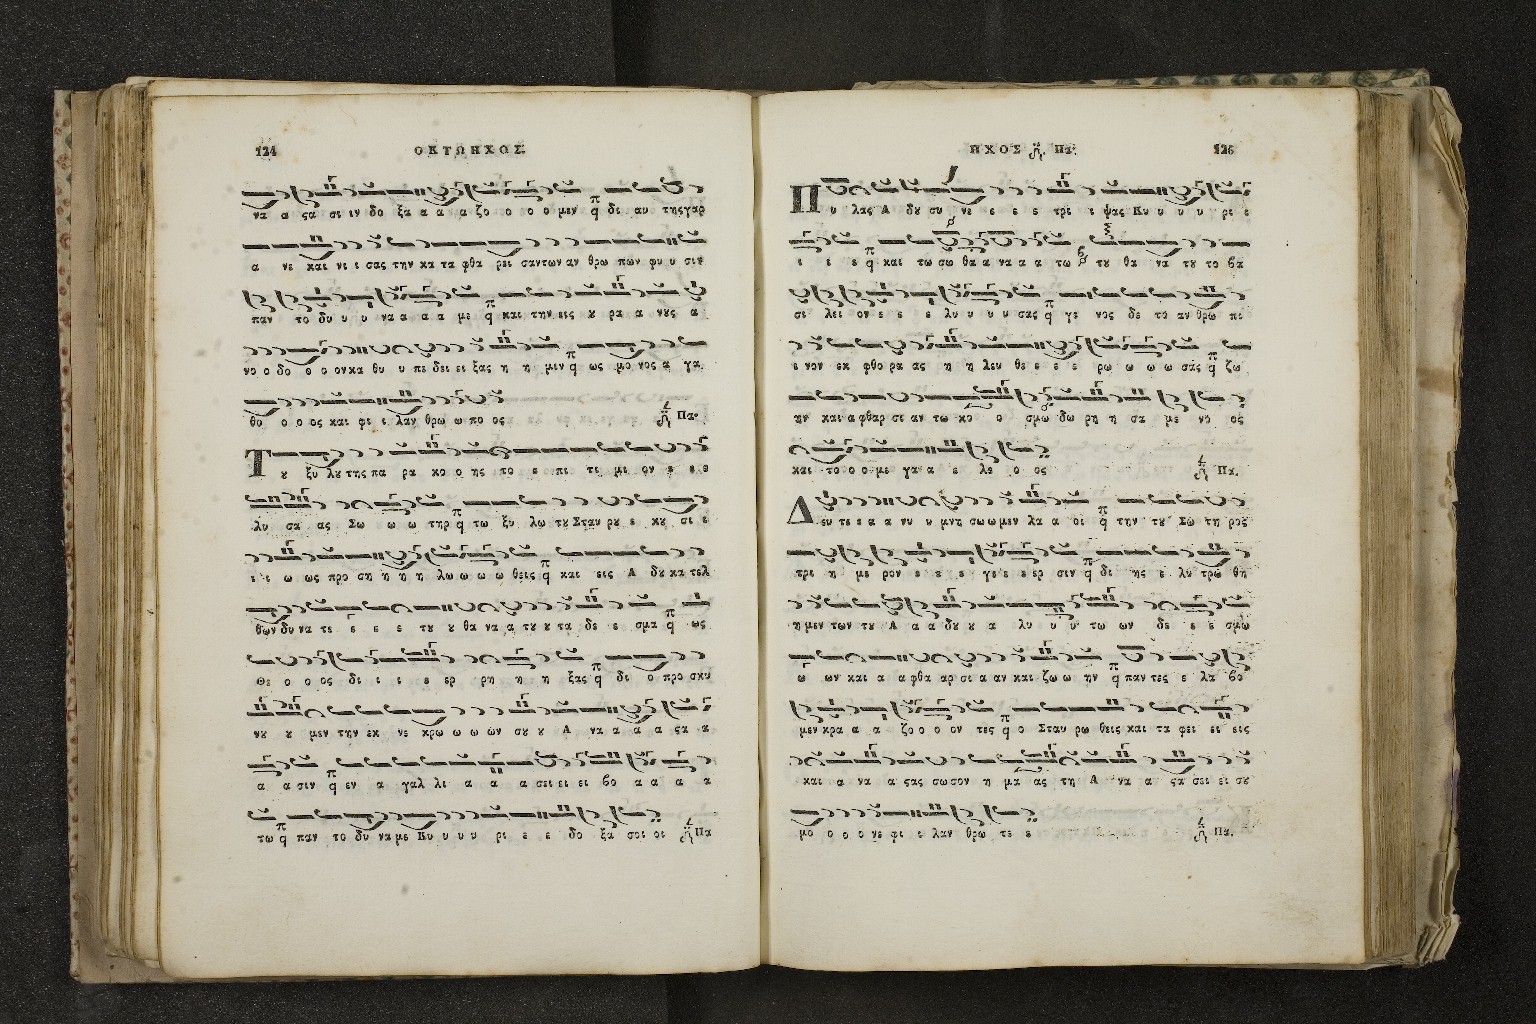 124 ΟΚΤΩΗΧΟΣ.
να α ςα σι ιν δο ξα α α α ζο ο ο ο μεν δι αυ της γαρ
α νε και νι ι σας την κα τα φθα ρει σαν των αν θρω πων φυ υ σιν
παν το δυ υ υ να α α α με και την εις ȣ ρα α νȣς α
νο ο δο θ ο ον κα θυ υ πε δει ει ξας η η μιν ως μο νος α γα
θο ο ο ος και φι ι λαν θρω ω πο ος Πα.
Τ ȣ ξυ λȣ της πα ρα κο ο ης το ε πι τι μι ον ε ε ε
λυ σα ας Σω ω ω τηρ τω ξυ λω τȣ Σταυ ρȣ ε κȣ σι ε
ι ι ω ως προ ση η η η λω ω ω ω θεις και εις Α δȣ κα τελ
θων δυ να τε ε ε ε τȣ ȣ θα να α τȣ ȣ τα δε ε σμα ως
Θε ο ο ος δι ι ι ε ερ ρη η η ξας δι ο προ σκυ
νȣ ȣ μεν την εκ νε κρω ω ω ων σȣ ȣ Α να α α α ςα α
α α σιν εν α γαλ λι α α α σει ει ει βο α α α α
τω παν το δυ να με Κυ υ υ υ ρι ε ε δο ξα σοι οι Πα
ΗΧΟΣ Πα. 125
Π υ λας Α δȣ συ νε ε ε ε τρι ι ψας Κυ υ υ υ ρι ε
ε ε ε και τω σω θα α να α α τω τȣ θα να τȣ το βα
σι λει ον ε ε ε λυ υ υ υ σας γε νος δε το αν θρω πι
ε νον εκ φθο ρα ας η η λευ θε ε ε ε ρω ω ω ω σας ζω
ην και α φθαρ σι αν τω κο ο σμω δω ρη η σα με νο ος
και το ο ο με γα α ε λε ο ος Πα.
Δ ευ τε ε α α νυ υ μνη σω ω μεν λα α οι την τȣ Σω τη ρος
τρι η με ρον ε ε ε γε ε ε ερ σιν δι ης ε λυ τρω θη
η μεν των τȣ Α α α δȣ ȣ α λυ υ υ τω ων δε ε ε σμω
ω ων και α α φθα αρ σι α αν και ζω ω ην παν τες ε λα βο
μεν κρα α α ζο ο ο ον τες ο Σταυ ρω θεις και τα φει ει εις
και α να α ςας σω σον η μα ας τη Α να α ςα σει ει σȣ
μο ο ο ο νε φι ι λαν θρω πε ε Πα.